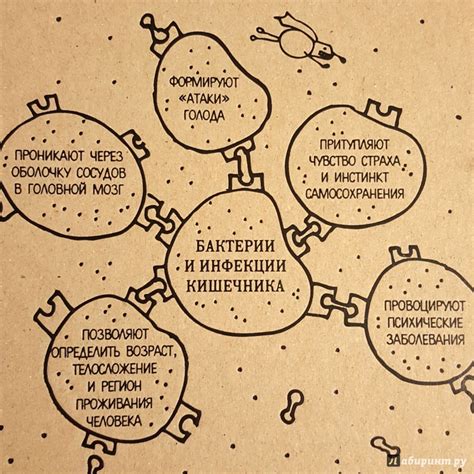 ФОРМИРУЮТ
«АТАКИ»
ГОЛОДА
ПРОНИКАЮТ ЧЕРЕЗ
ОБОЛОЧКУ СОСУДОВ
В ГОЛОВНОЙ МОЗГ
ПРИТУПЛЯЮТ
ЧУВСТВО СТРАХА
И ИНСТИНКТ
САМОСОХРАНЕНИЯ
БАКТЕРИИ
И ИНФЕКЦИИ
КИШЕЧНИКА
ПРОВОЦИРУЮТ
ПСИХИЧЕСКИЕ
ЗАБОЛЕВАНИЯ
ПОЗВОЛЯЮТ
ОПРЕДЕЛИТЬ ВОЗРАСТ,
ТЕЛОСЛОЖЕНИЕ
И РЕГИОН
ПРОЖИВАНИЯ
ЧЕЛОВЕКА
Лабиринт.ру